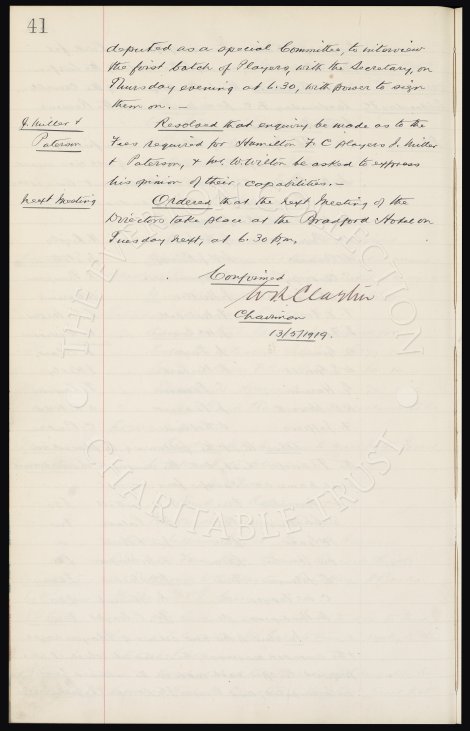 41
deputed as a special Committee, to interview
the first batch of Players, with the Secretary, on
Thursday evening at 6.30, with power to sign
them on. —
J. Miller &
Paterson
Resolved that enquiry be made as to the
Fees required for Hamilton F. C players J. Miller
& Paterson, & Mr W. Wilton be asked to express
his opinion of their capabilities. —
Next Meeting
Ordered that the next Meeting of the
Directors take place at the Bradford Hotel on
Tuesday next, at 6.30 p.m.
Confirmed
W R Clayton
Chairman
13/5/1919.
THE EVERTON COLLECTION
CHARITABLE TRUST